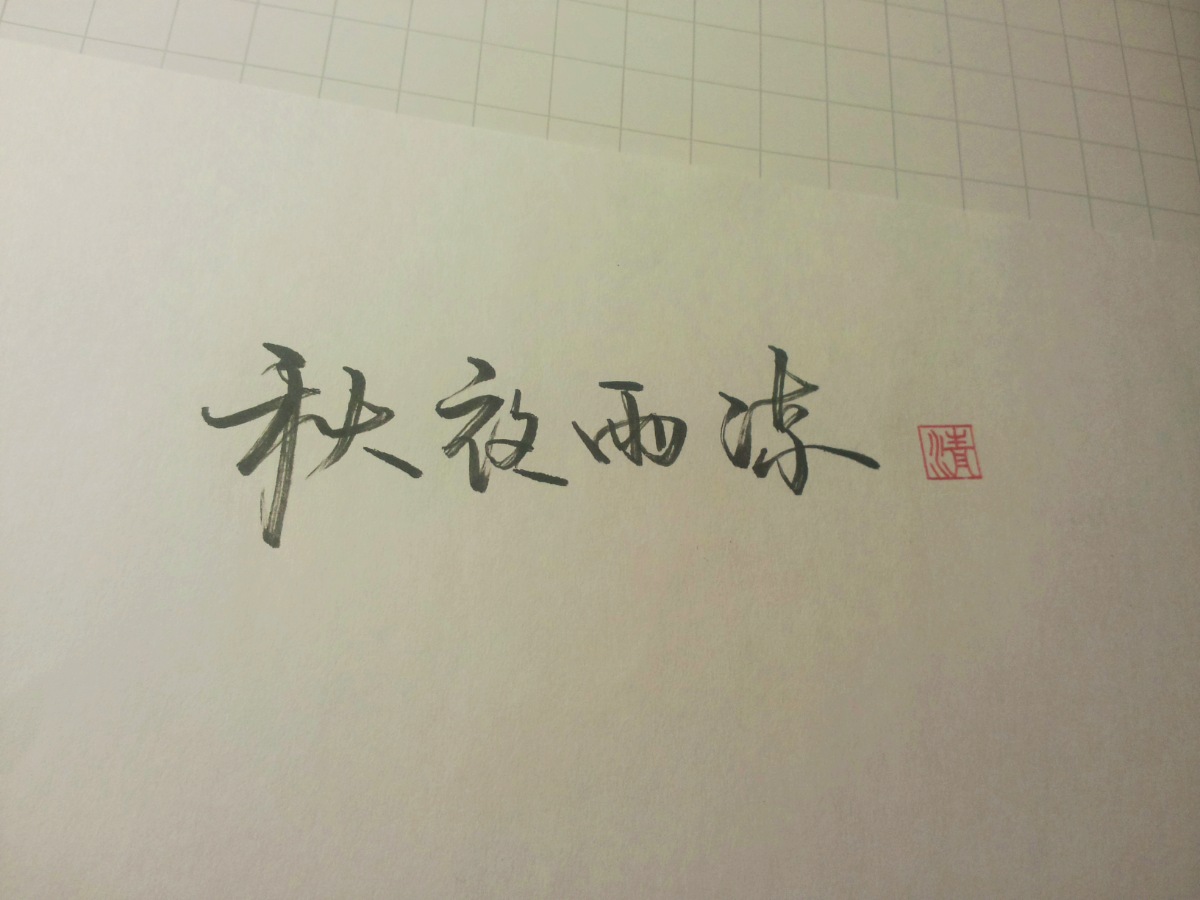 秋夜雨凉
清